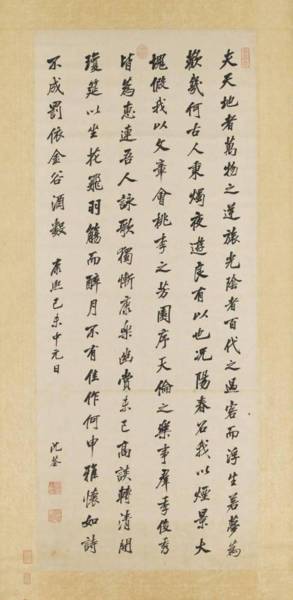 夫天地者萬物之逆旅光陰者百代之過客而浮生若夢為
歡幾何古人秉燭夜遊良有以也況陽春召我以煙景大
塊假我以文章會桃李之芳園序天倫之樂事羣季俊秀
皆為惠連吾人詠歌獨慚康樂幽賞未已高談轉清開
瓊筵以坐花飛羽觴而醉月不有佳作何申雅懷如詩
不成罰依金谷酒數 康熙己未中元日
沈荃